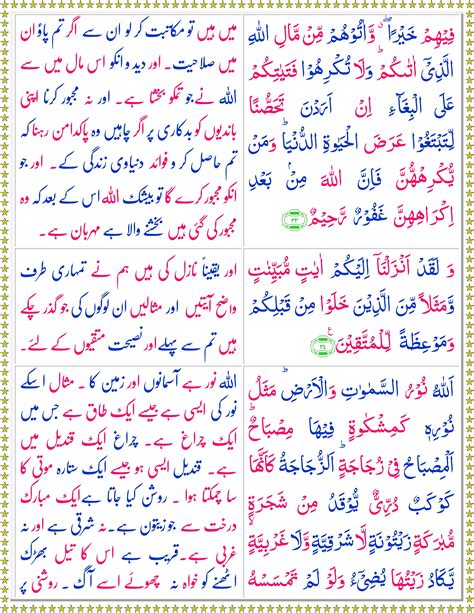 فِيْهِمْ خَيْرًا ۖ وَّاٰتُوْهُمْ مِّنْ مَّالِ اللّٰهِ
الَّذِيْۤ اٰتٰىكُمْ ؕ وَلَا تُكْرِهُوْا فَتَيٰتِكُمْ
عَلَى الْبِغَآءِ اِنْ اَرَدْنَ تَحَصُّنًا
لِّتَبْتَغُوْا عَرَضَ الْحَيٰوةِ الدُّنْيَا ؕ وَمَنْ
يُّكْرِهْهُّنَّ فَاِنَّ اللّٰهَ مِنْۢ بَعْدِ
اِكْرَاهِهِنَّ غَفُوْرٌ رَّحِيْمٌ ۳۳
میں ہیں تو مکاتبت کر لو ان سے اگر تم پاؤ ان
میں صلاحیت۔ اور دید و انکو اس مال میں سے
اللہ نے جو تمکو بخشا ہے۔ اور نہ مجبور کرنا اپنی
باندیوں کو بدکاری پر اگر چاہیں وہ پاکدامن رہنا کہ
تم حاصل کر و فوائد دنیاوی زندگی کے۔ اور جو
انکو مجبور کرے گا تو بیشک اللہ اس کے بعد کہ وہ
مجبور کی گئی ہیں بخشنے والا ہے مہربان ہے۔
وَ لَقَدْ اَنْزَلْنَاۤ اِلَيْكُمْ اٰيٰتٍ مُّبَيِّنٰتٍ
وَّمَثَلًا مِّنَ الَّذِيْنَ خَلَوْا مِنْ قَبْلِكُمْ
وَمَوْعِظَةً لِّلْمُتَّقِيْنَ ۳۴
اور یقیناً نازل کی ہیں ہم نے تمہاری طرف
واضح آیتیں اور مثالیں ان لوگوں کی جو گذر چکے
ہیں تم سے پہلے اور نصیحت متقیوں کے لئے۔
اَللّٰهُ نُوْرُ السَّمٰوٰتِ وَالْاَرْضِ ؕ مَثَلُ
نُوْرِهٖ كَمِشْكٰوةٍ فِيْهَا مِصْبَاحٌ ؕ
اَلْمِصْبَاحُ فِيْ زُجَاجَةٍ ؕ اَلزُّجَاجَةُ كَاَنَّهَا
كَوْكَبٌ دُرِّيٌّ يُّوْقَدُ مِنْ شَجَرَةٍ
مُّبٰرَكَةٍ زَيْتُوْنَةٍ لَّا شَرْقِيَّةٍ وَّلَا غَرْبِيَّةٍ ۙ
يَّكَادُ زَيْتُهَا يُضِيْٓءُ وَلَوْ لَمْ تَمْسَسْهُ
اللہ نور ہے آسمانوں اور زمین کا۔ مثال اسکے
نور کی ایسی ہے جیسے ایک طاق ہے جس میں
ایک چراغ ہے۔ چراغ ایک قندیل میں
ہے۔ قندیل ایسی ہے جیسے ایک ستارہ موتی کا
سا چمکتا ہوا۔ روشن کیا جاتا ہے ایک مبارک
درخت سے جو زیتون ہے۔ نہ شرقی ہے اور نہ
غربی ہے۔ قریب ہے اس کا تیل بھڑک
اٹھنے کو خواہ نہ چھوئے اسے آگ۔ روشنی پر